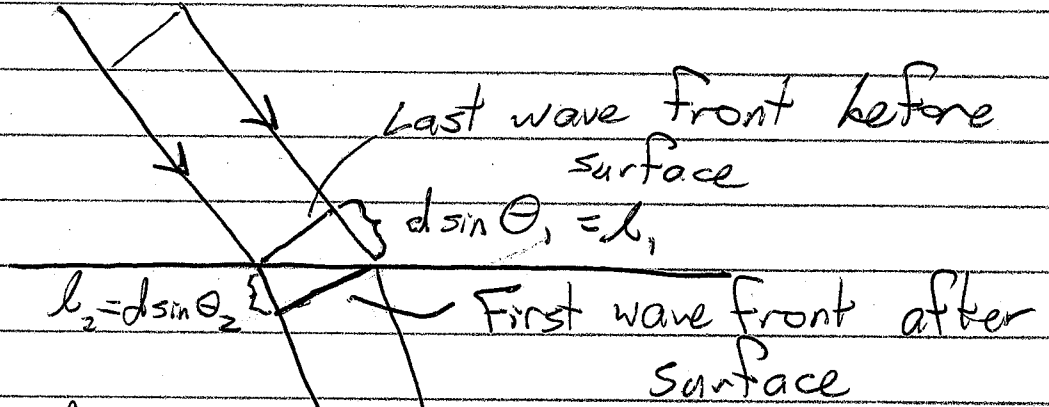 Last wave front before
surface
d sin θ₁ = l₁
l₂ = d sin θ₂
First wave front after
surface